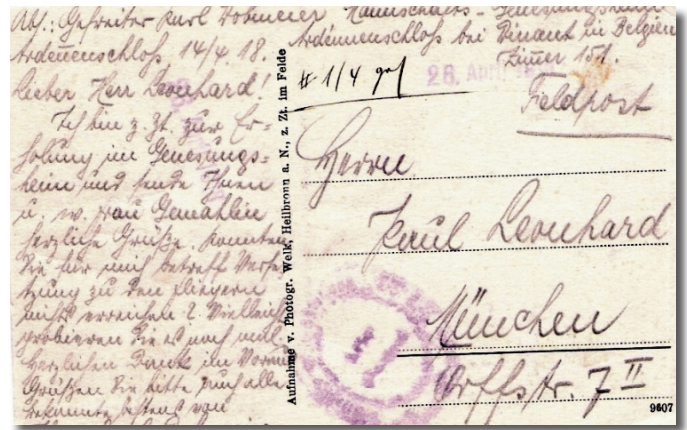 Abs.: Gefreiter Karl Dobmeier Mannschafts-Genesungsheim
Ardennenschloß bei Dinant in Belgien
Zimmer 151.
Ardennenschloß, 14/4. 18.
Lieber Herr Leonhard!
Ich bin z. Zt. zur Er-
holung im Genesungs-
heim und sende Ihnen
u. w. Frau Gemahlin
herzliche Grüße. Konnten
Sie für mich betreff Verse-
tzung zu den Fliegern
nichts erreichen? Vielleicht
probieren Sie es noch mal
Herzlichen Dank im Voraus
Grüßen Sie bitte auch alle
Bekannte bestens von
Aufnahme v. Photogr. Welk, Heilbronn a. N., z. Zt. im Felde
26. Apr
Feldpost
Herrn
Paul Leonhard
München
Orffstr. 7 II
9607